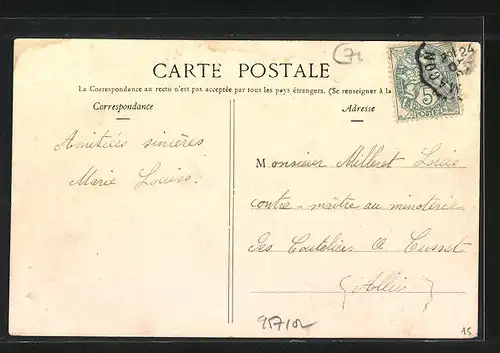 71
CARTE POSTALE
La Correspondance au recto n'est pas acceptée par tous les pays étrangers. (Se renseigner à la
Correspondance
Adresse
5
POSTES
MACON
24
Amitiés sincères
Marie Louise.
Monsieur Milleret Louis
contre-maître au minoterie
des Couteliers à Cusset
(Allier)
957102
15